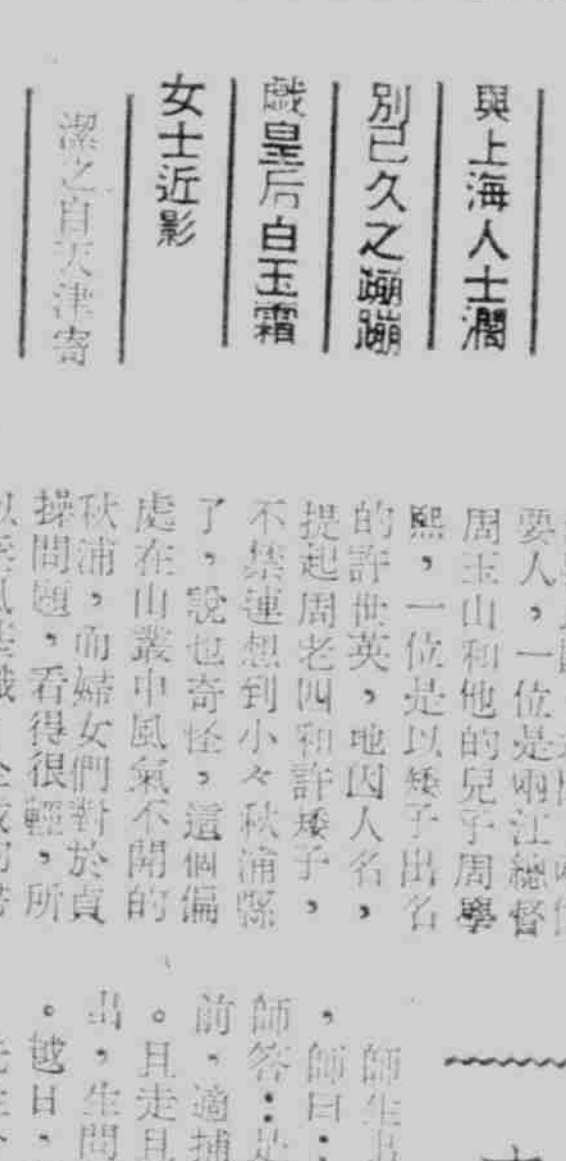 與上海人士濶
別已久之蹦蹦
戲皇后白玉霜
女士近影
潔之自天津寄
要人，一位是兩江總督
周玉山和他的兒子周學
熙，一位是以矮子出名
的許世英，地因人名，
提起周老四和許矮子，
不禁連想到小々秋浦縣
了，說也奇怪，這個偏
處在山叢中風氣不開的
秋浦，而婦女們對於貞
操問題，看得很輕，所
師生
，師曰：
師答：是
前，適捕
。且走且
出，生問
。越日，